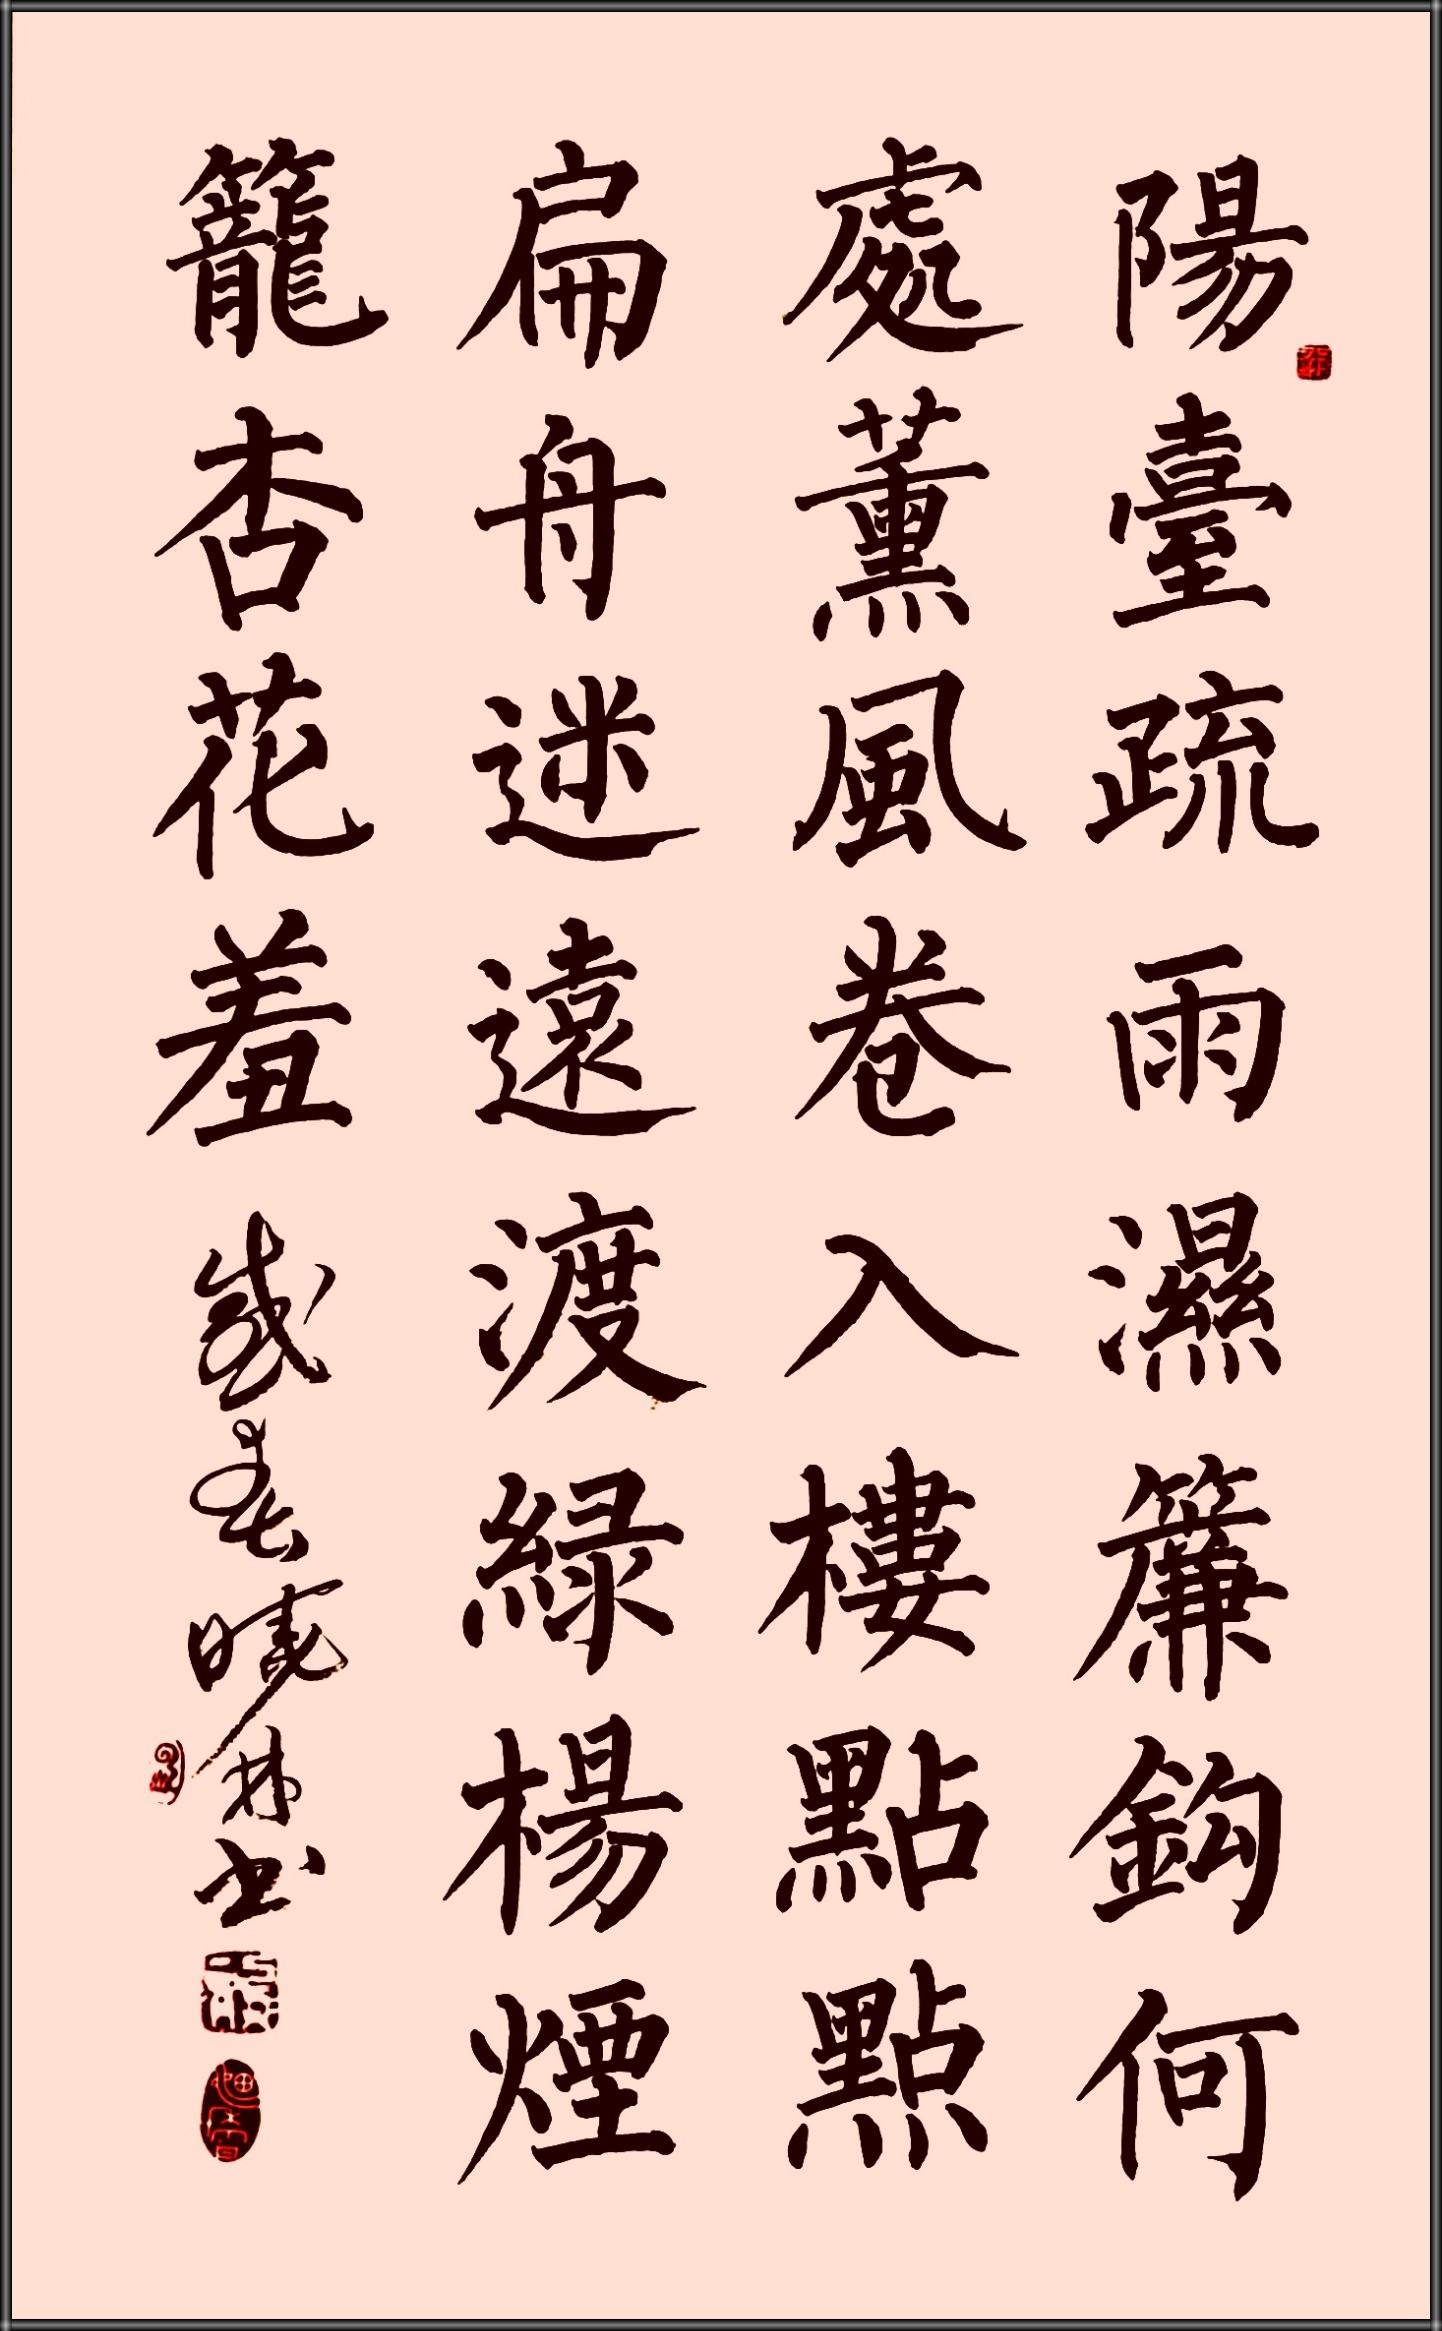 陽臺疏雨濕簾鈎何
處薰風卷入樓點點
扁舟迷遠渡綠楊煙
籠杏花羞
感春 曉林书